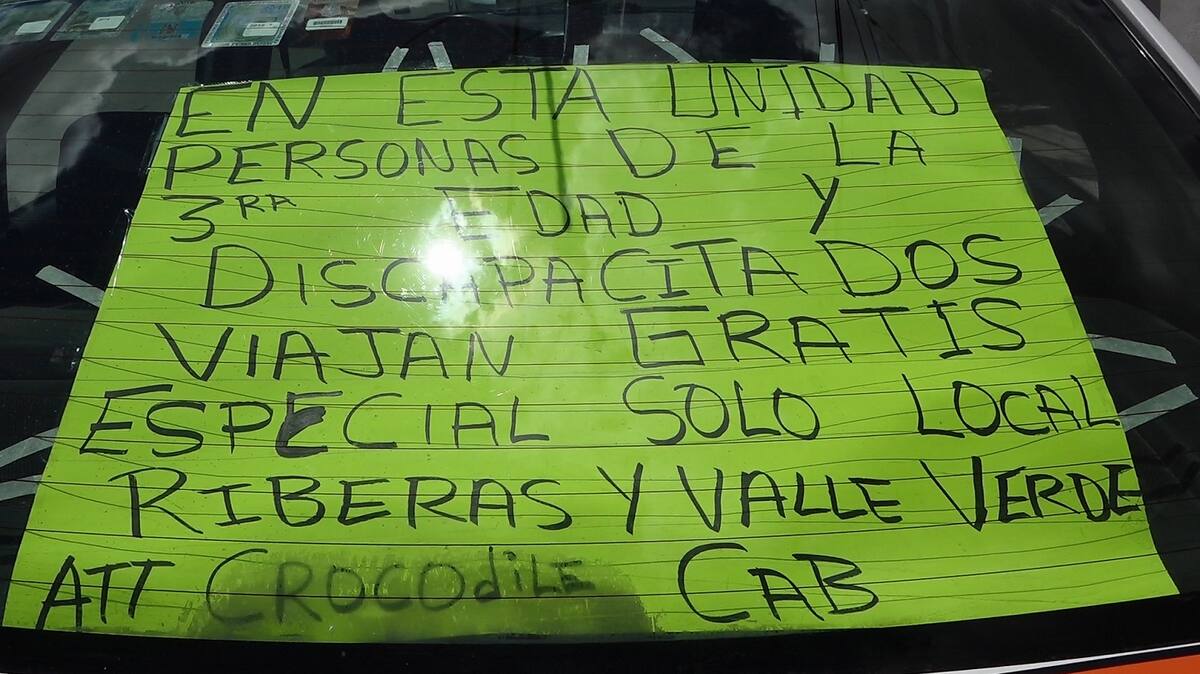 EN ESTA UNIDAD
PERSONAS DE LA
3RA EDAD Y
DISCAPACITADOS
VIAJAN GRATIS
ESPECIAL SOLO LOCAL
RIBERAS Y VALLE VERDE
ATT CROCOdiLE CAB